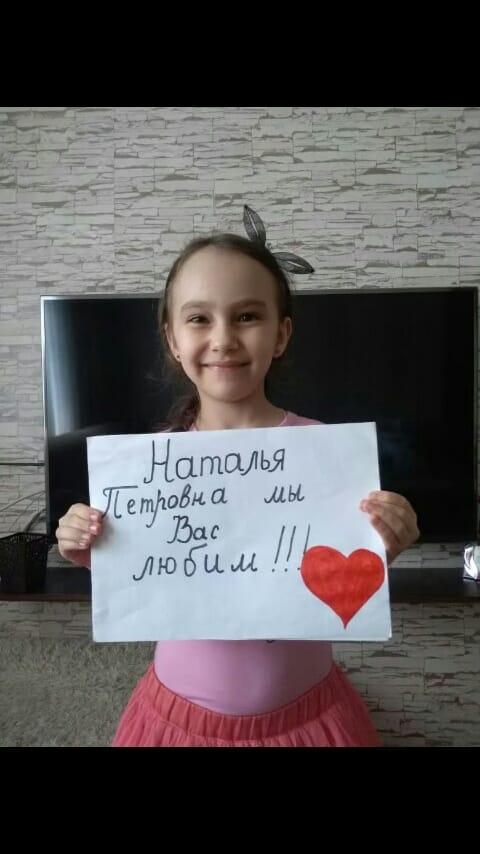 Наталья
Петровна мы
Вас
любим!!!